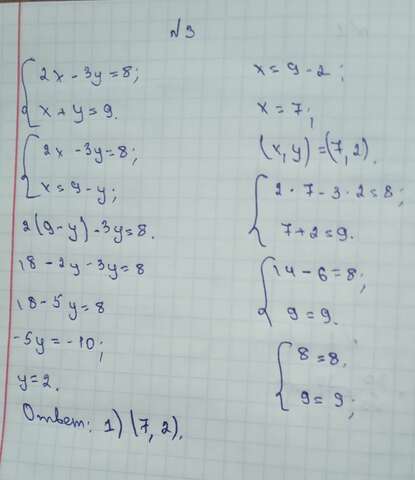 №3
2x - 3y = 8;
x + y = 9.
2x - 3y = 8;
x = 9 - y;
2(9 - y) - 3y = 8.
18 - 2y - 3y = 8
18 - 5y = 8
-5y = -10;
y = 2.
Ответ: 1) (7, 2).
x = 9 - 2;
x = 7;
(x, y) = (7, 2).
2 · 7 - 3 · 2 = 8;
7 + 2 = 9.
14 - 6 = 8;
9 = 9.
8 = 8.
9 = 9;